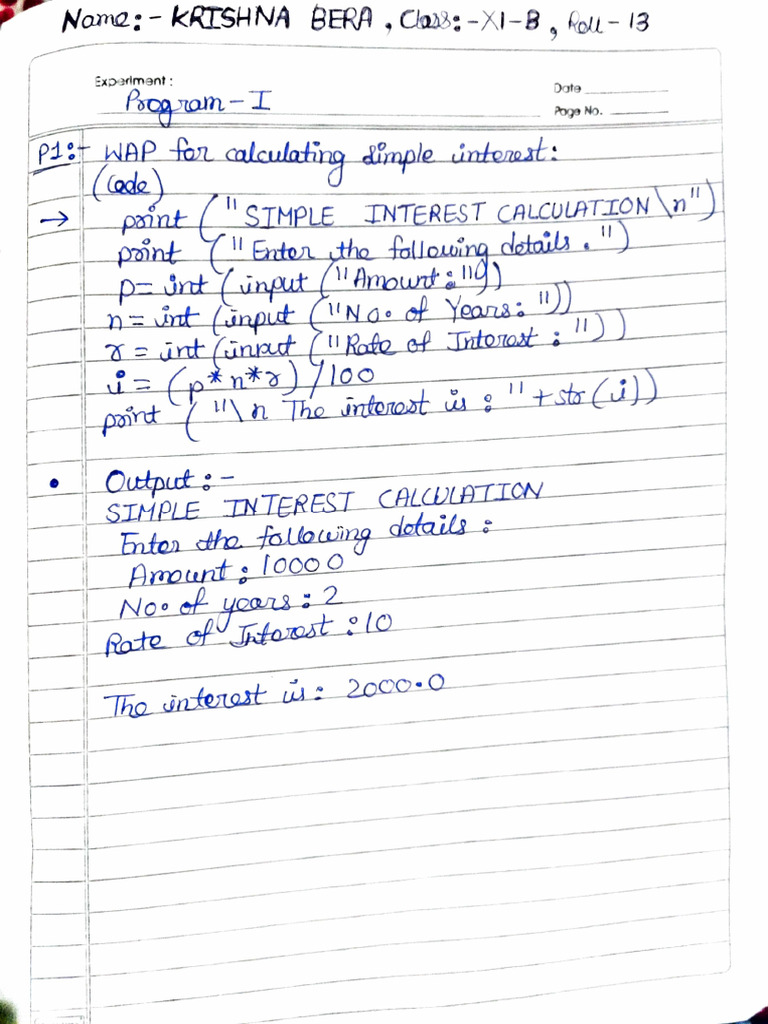 Name:- KRISHNA BERA, Class:-XI-B, Roll-13
Experiment:
Date
Program-I
Page No.
P1:- WAP for calculating simple interest:
(Code)
→ print (" SIMPLE INTEREST CALCULATION \n")
print ("Enter the following details.")
p= int (input ("Amount:"))
n = int (input ("No. of Years: "))
r = int (input ("Rate of Interest : "))
i = (p*n*r)/100
print ("\n The interest is : " + str(i))
• Output:-
SIMPLE INTEREST CALCULATION
Enter the following details :
Amount: 10000
No. of years: 2
Rate of Interest :10
The interest is: 2000.0